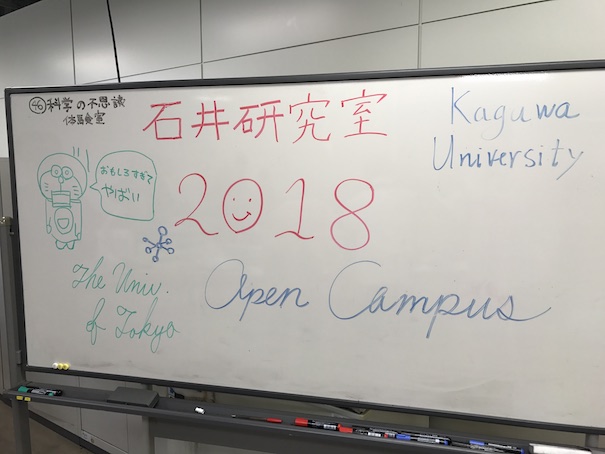 ㊻科学の不思議
体験教室
石井研究室
Kagawa
University
おもしろすぎて
やばい
2018
The Univ.
of Tokyo
Open Campus